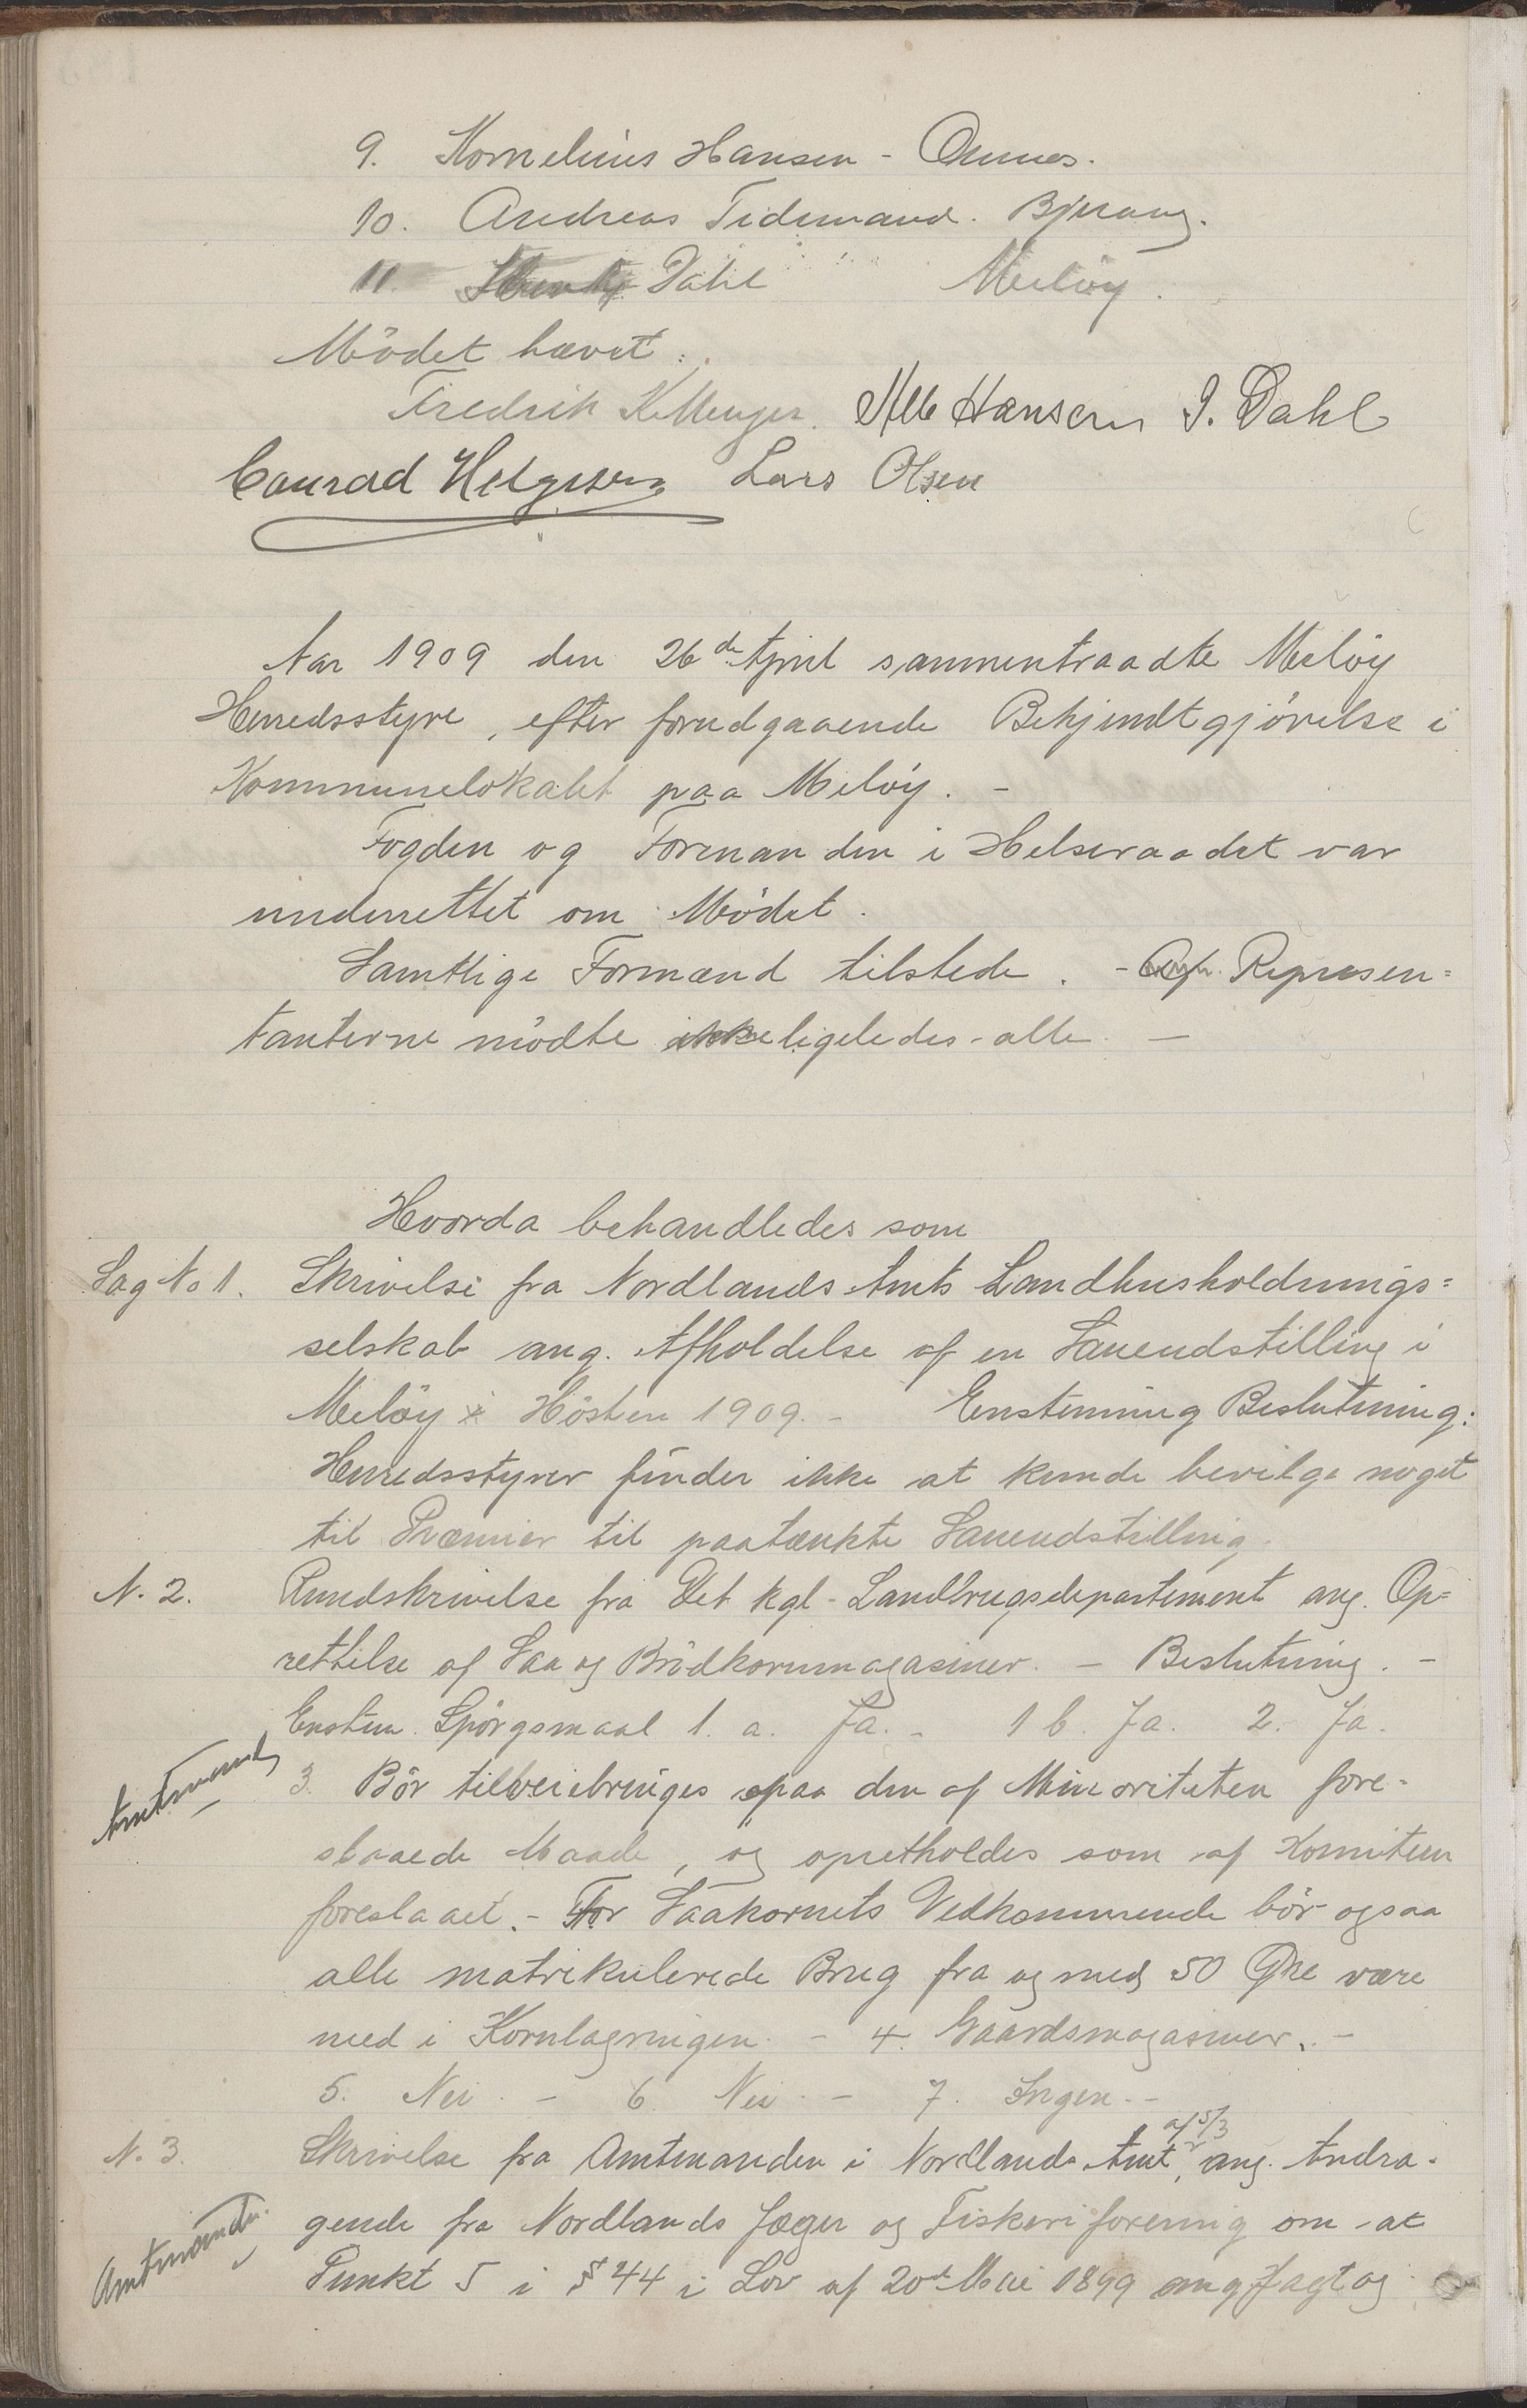 9. Kornelius Hansen - Ørnes.
10. Andreas Tidemand. Bjerang.
11. Dahl Meløy.
Mödet hævet:
Fredrik Kildal Meyer. Hansen I. Dahl
Conrad Helgesen Lars Olsen
Aar 1909 den 26de April sammentraadte Meløy
Herredsstyre, efter forudgaaende Bekjendtgjörelse i
Kommunelokalet paa Meløy. -
Fogden og Formanden i Helseraadet var
underrettet om Mödet.
Samtlige Formænd tilstede. - Repræsen=
tanterne mödte ikke ligeledes - alle. -
Hvorda behandledes som
Sag No 1. Skrivelse fra Nordlands Amts Landhusholdnings=
selskab ang. Afholdelse af en Saueudstilling i
Meløy i Hösten 1909. - Enstemmig Beslutning:
Herredsstyret finder ikke at kunde bevilge noget
til Præmier til paatænkte Saueudstilling.
N. 2. Rundskrivelse fra Det kgl. Landbrugsdepartement ang. Op=
rettelse af Saa og Brödkornmagasiner. - Beslutning. -
Enstem. Spörgsmaal 1. a. Ja. - 1 b. Ja. 2. Ja.
Amtmand
3. Bör tilveiebringes paa den af Minoriteten fore-
slaaede Maade, og opretholdes som af Komiteen
foreslaaet. - For Saakornets Vedkommende bör ogsaa
alle matrikulerede Brug fra og med 50 Øre være
med i Kornlagringen. - 4. Gaardsmagasiner. -
5. Nei. - 6. Nei. - 7. Ingen. -
af 5/3
N. 3. Skrivelse fra Amtmanden i Nordlands Amt, ang. Andra-
gende fra Nordlands Jæger og Fiskeriforening om at
Amtmanden
Punkt 5 i § 44 i Lov af 20de Mai 1899 ang Jagt og